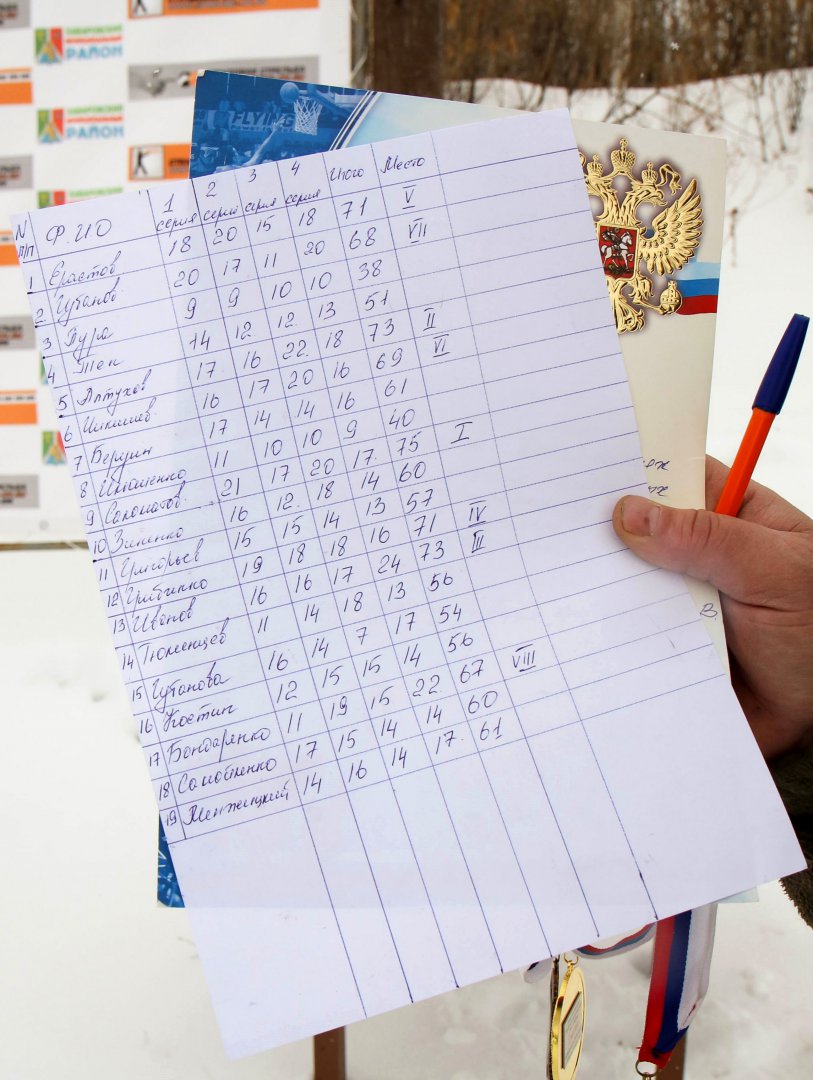 ХАБАРОВСКИЙ
МУНИЦИПАЛЬНЫЙ
РАЙОН
РАЙОН
FLYING
N п/п Ф.И.О 1 серия 2 серия 3 серия 4 серия Итого Место
1 Ерастов 18 20 15 18 71 V
2 Чубанов 20 17 11 20 68 VII
3 Пура 9 9 10 10 38
4 Тен 14 12 12 13 51
5 Алтухов 17 16 22 18 73 II
6 16 17 20 16 69 VI
7 Бердин 17 14 14 16 61
8 11 10 10 9 40
9 Соломатов 21 17 20 17 75 I
10 Зиненко 16 12 18 14 60
11 Григорьев 15 15 14 13 57
12 Грибинко 19 18 18 16 71 IV
13 Иванов 16 16 17 24 73 III
14 Тюменцев 11 14 18 13 56
15 Чубанова 16 14 7 17 54
16 Костин 12 15 15 14 56
17 Бондаренко 11 19 15 22 67 VIII
18 Самойленко 17 15 14 14 60
19 Менжицкий 14 16 14 17 61